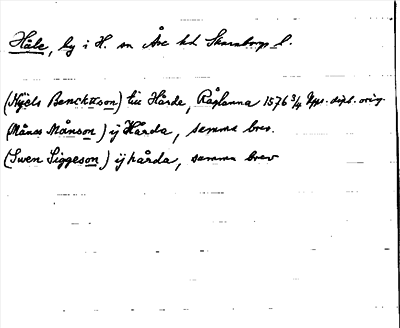 Håle, by i H. sn Åse hd Skaraborgs l.
(Nyels Bencktson) tiu Hårda, Råslanna 1576 3/4 Upps. dipl. orig.
(Månes Månson) ij Hårda, samma brev.
(Swen Siggeson) ij hårda, samma brev